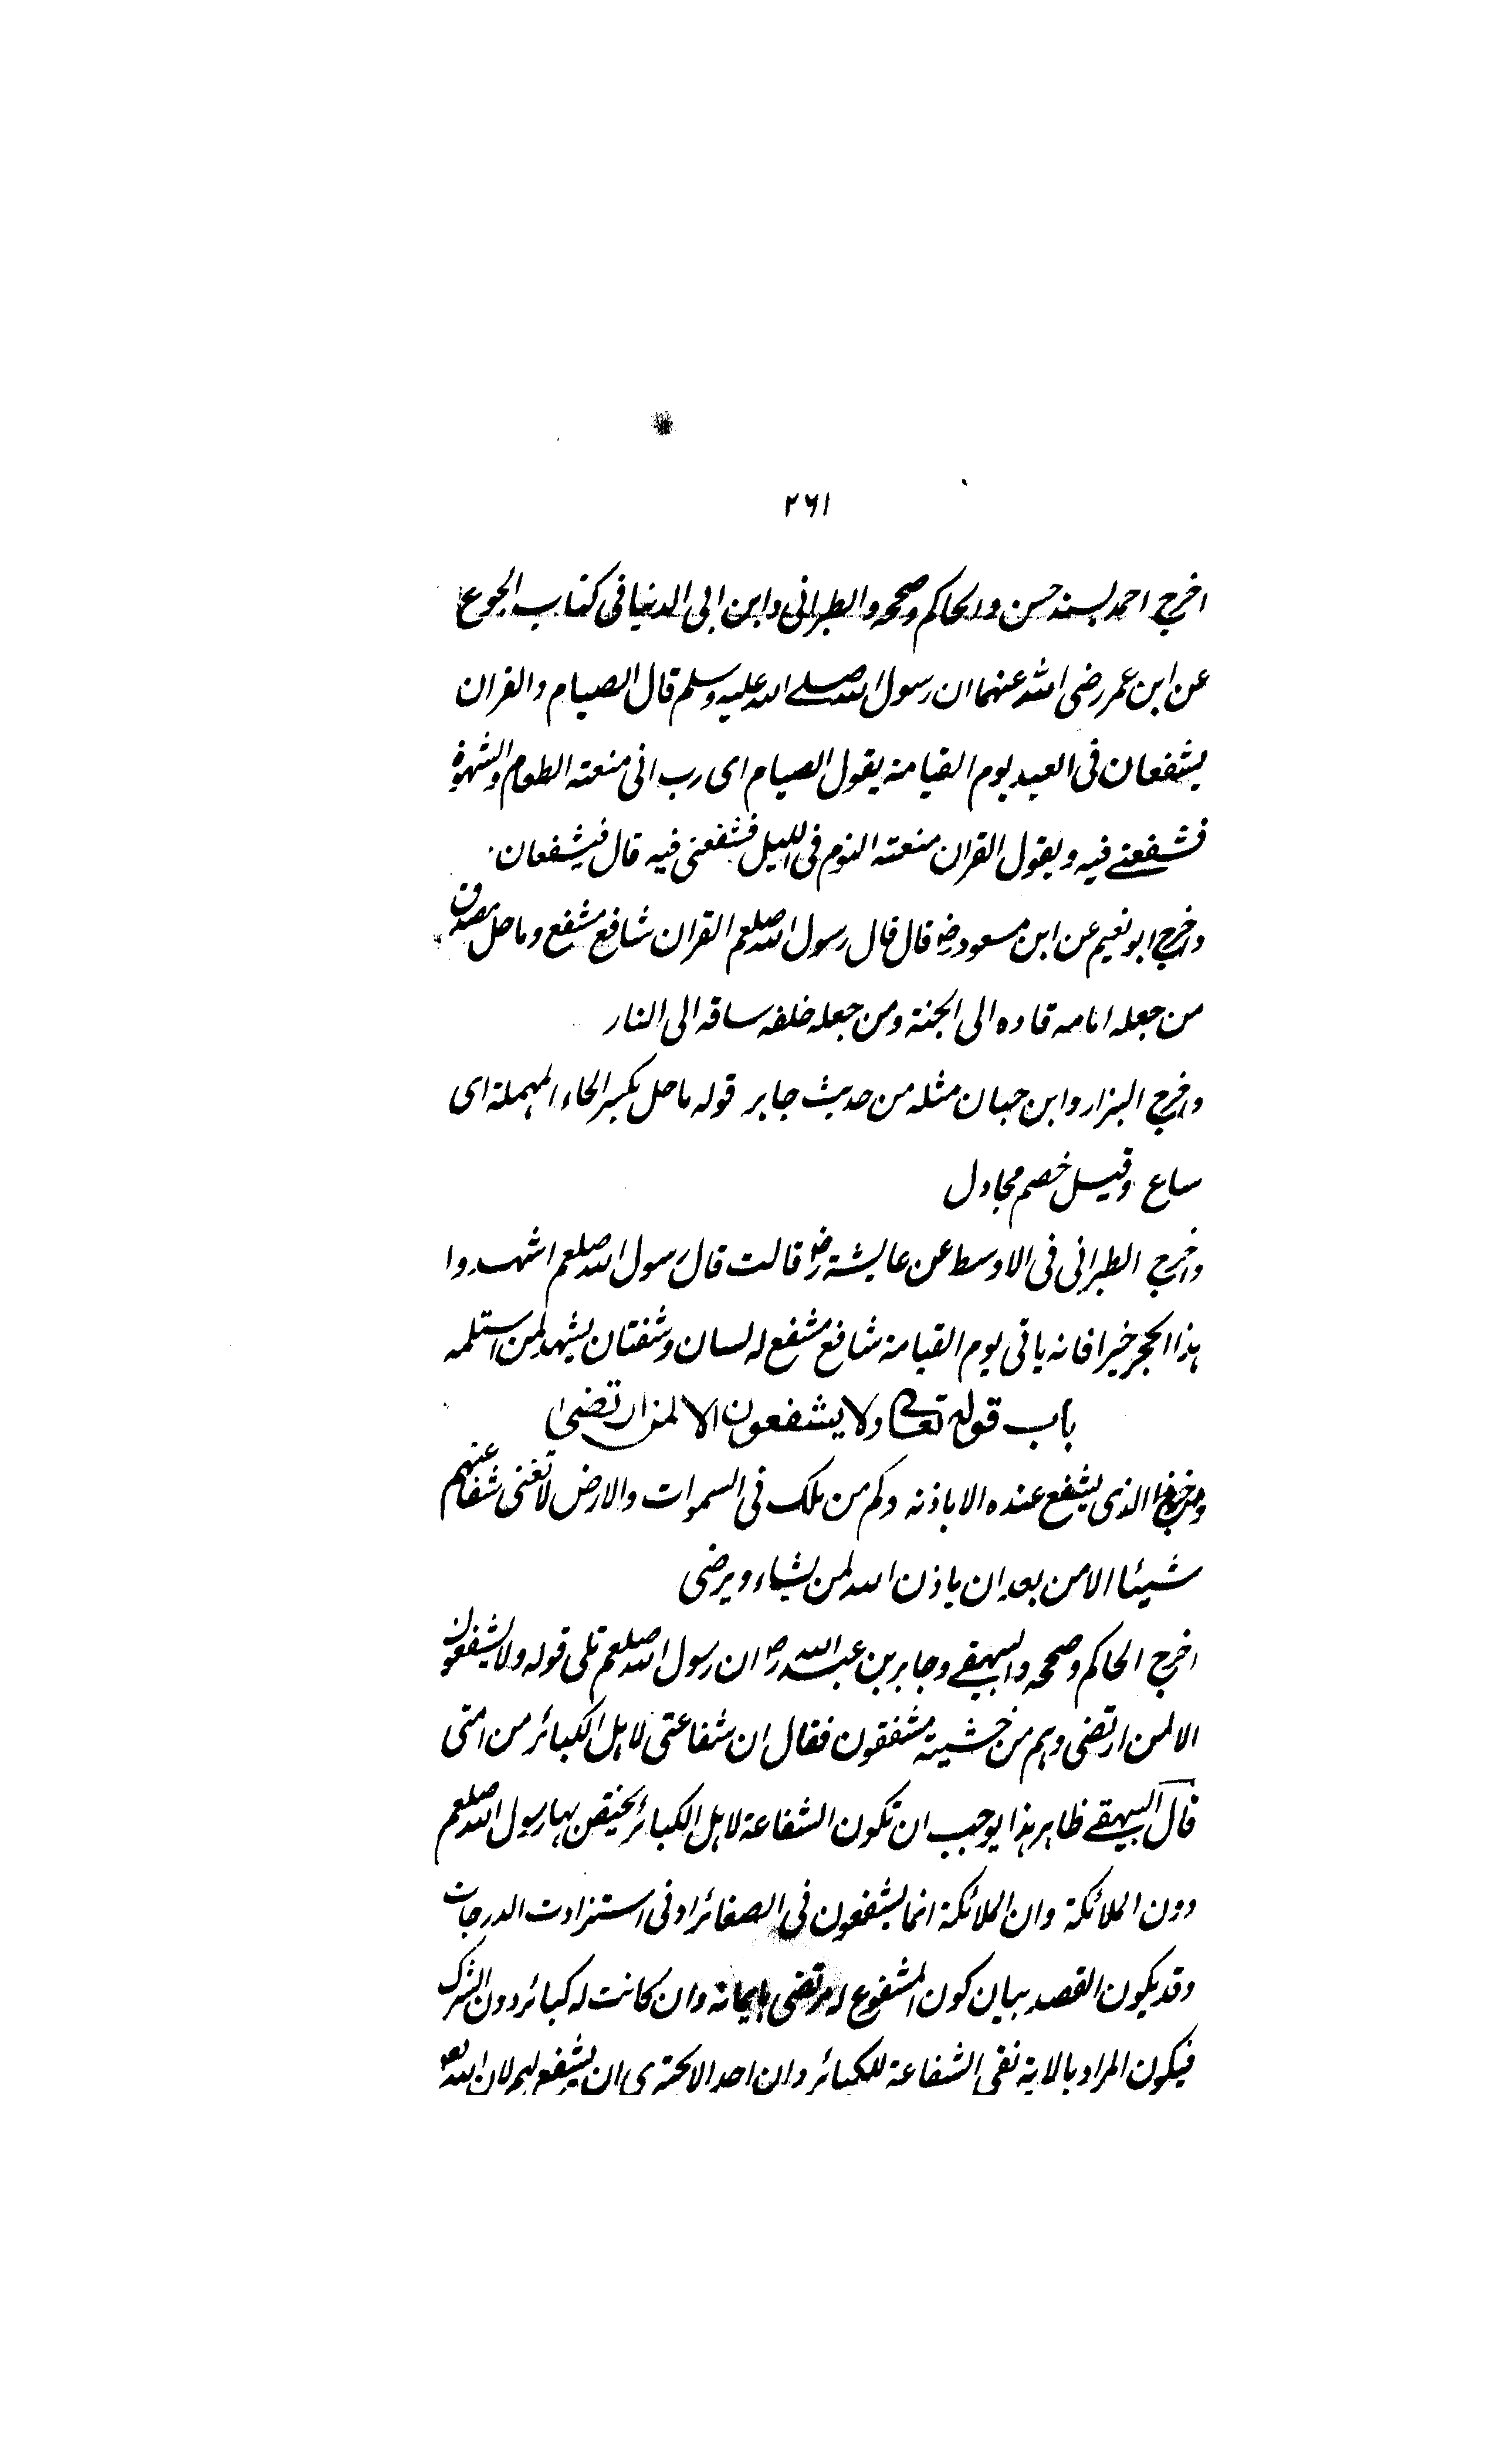 ۲۶۱
اخرج احمد بسند حسن والحاكم وصححه والطبرانى وابن ابى الدنيا فى كتاب الجوع
عن ابن عمر رضى الله عنهما ان رسول الله صلے الله عليه وسلم قال الصيام والقران
يشفعان فى العبد يوم القيامة يقول الصيام اى رب انى منعته الطعام والشهوة
فشفعنے فيه ويقول القران منعته النوم فى الليل فشفعنى فيه قال فيشفعان
واخرج ابو نعيم عن ابن مسعود رضہ قال قال رسول الله صلعم القران شافع مشفع وماحل مصدق
من جعله امامه قاده الى الجنة ومن جعله خلفه ساقه الى النار
واخرج البزار وابن حبان مثله من حديث جابر قوله ماحل بكسر الحاء المهملة اى
ساع وقيل خصم مجادل
واخرج الطبرانى فى الاوسط عن عايشة رضہ قالت قال رسول الله صلعم اشهدوا
هذا الحجر خيرا فانه ياتى يوم القيامة شافع مشفع له لسان وشفتان يشهد لمن استلمه
باب قوله تعالى ولا يشفعون الا لمن ارتضى
الذى يشفع عنده الا باذنه وكم من ملك فى السموات والارض لا تغنى شفاعتهم
شيئا الا من بعد ان ياذن الله لمن يشاء ويرضى
اخرج الحاكم وصححه والبيهقے وجابر بن عبد الله رض ان رسول الله صلعم تلى قوله ولا يشفعون
الا لمن ارتضى وهم من خشيته مشفقون فقال ان شفاعتى لاهل الكبائر من امتى
قال البيهقے ظاهر هذا يوجب ان تكون الشفاعة لاهل الكبائر يختص بها رسول الله صلعم
دون الملائكة وان الملائكة انما يشفعون فى الصغائر او فى استزادت الدرجات
وقد يكون القصد بيان كون المشفوع له مرتضى بايمانه وان كانت له كبائر دون الشرك
فيكون المراد بالاية نفى الشفاعة للكبائر وان احد الا يحترى ان يشفع لهم لان الله